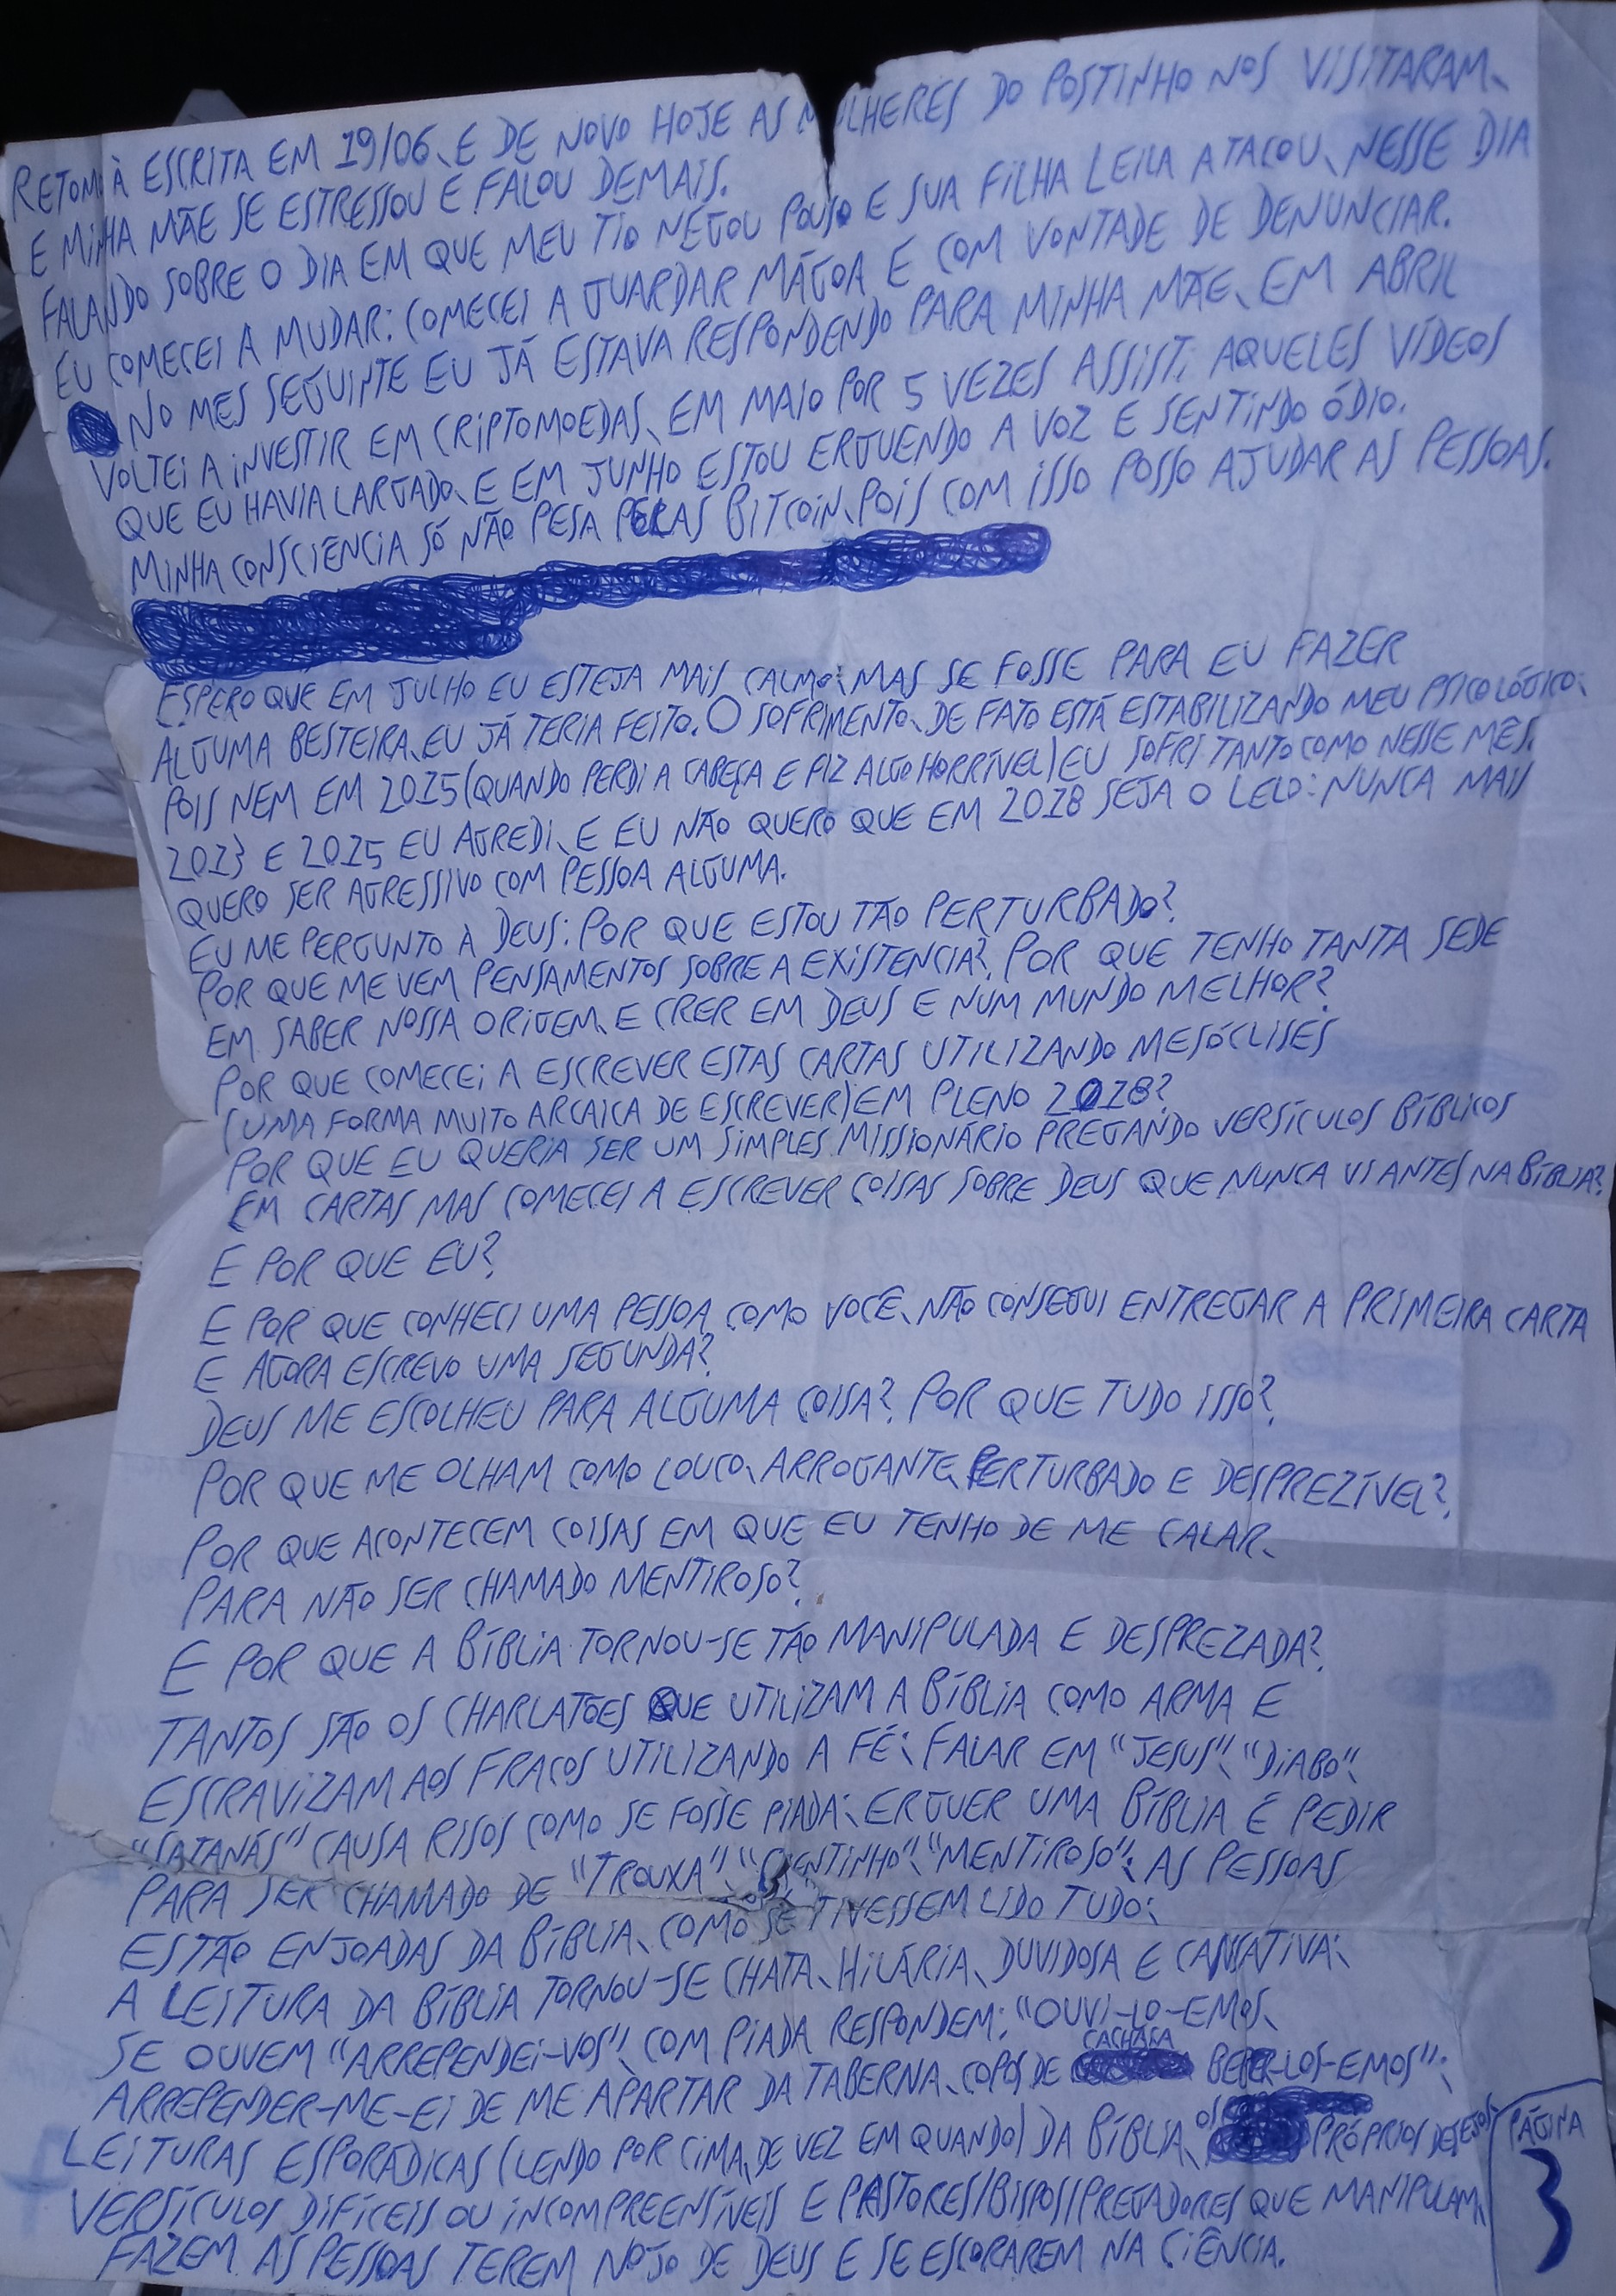 RETOMO À ESCRITA EM 19/06, E DE NOVO HOJE AS MULHERES DO POSTINHO NOS VISITARAM,
E MINHA MÃE SE ESTRESSOU E FALOU DEMAIS.
FALANDO SOBRE O DIA EM QUE MEU TIO NEGOU POUSO E SUA FILHA LEILA ATACOU, NESSE DIA
EU COMECEI A MUDAR: COMECEI A GUARDAR MÁGOA E COM VONTADE DE DENUNCIAR.
NO MES SEGUINTE EU JÁ ESTAVA RESPONDENDO PARA MINHA MÃE, EM ABRIL
VOLTEI A INVESTIR EM CRIPTOMOEDAS, EM MAIO POR 5 VEZES ASSISTI AQUELES VÍDEOS
QUE EU HAVIA LARGADO, E EM JUNHO ESTOU ERGUENDO A VOZ E SENTINDO ÓDIO.
MINHA CONSCIÊNCIA SÓ NÃO PESA PELAS BITCOIN, POIS COM ISSO POSSO AJUDAR AS PESSOAS.
ESPERO QUE EM JULHO EU ESTEJA MAIS CALMO; MAS SE FOSSE PARA EU FAZER
ALGUMA BESTEIRA, EU JÁ TERIA FEITO. O SOFRIMENTO, DE FATO ESTÁ ESTABILIZANDO MEU PSICOLÓGICO;
POIS NEM EM 2015 (QUANDO PERDI A CABEÇA E FIZ ALGO HORRÍVEL) EU SOFRI TANTO COMO NESSE MÊS.
2013 E 2015 EU AGREDI, E EU NÃO QUERO QUE EM 2018 SEJA O LELO: NUNCA MAIS
QUERO SER AGRESSIVO COM PESSOA ALGUMA.
EU ME PERGUNTO À DEUS: POR QUE ESTOU TÃO PERTURBADO?
POR QUE ME VEM PENSAMENTOS SOBRE A EXISTENCIA?, POR QUE TENHO TANTA SEDE
EM SABER NOSSA ORIGEM, E CRER EM DEUS E NUM MUNDO MELHOR?
POR QUE COMECEI A ESCREVER ESTAS CARTAS UTILIZANDO MESÓCLISES
(UMA FORMA MUITO ARCAICA DE ESCREVER) EM PLENO 2018?
POR QUE EU QUERIA SER UM SIMPLES MISSIONÁRIO PREGANDO VERSÍCULOS BÍBLICOS
EM CARTAS MAS COMECEI A ESCREVER COISAS SOBRE DEUS QUE NUNCA VI ANTES NA BÍBLIA?
E POR QUE EU?
E POR QUE CONHECI UMA PESSOA COMO VOCÊ, NÃO CONSEGUI ENTREGAR A PRIMEIRA CARTA
E AGORA ESCREVO UMA SEGUNDA?
DEUS ME ESCOLHEU PARA ALGUMA COISA?, POR QUE TUDO ISSO?,
POR QUE ME OLHAM COMO LOUCO, ARROGANTE, PERTURBADO E DESPREZÍVEL?,
POR QUE ACONTECEM COISAS EM QUE EU TENHO DE ME CALAR,
PARA NÃO SER CHAMADO MENTIROSO?,
E POR QUE A BÍBLIA TORNOU-SE TÃO MANIPULADA E DESPREZADA?,
TANTOS SÃO OS CHARLATÕES QUE UTILIZAM A BÍBLIA COMO ARMA E
ESCRAVIZAM AOS FRACOS UTILIZANDO A FÉ; FALAR EM "JESUS", "DIABO",
"SATANÁS" CAUSA RISOS COMO SE FOSSE PIADA; ERGUER UMA BÍBLIA É PEDIR
PARA SER CHAMADO DE "TROUXA", "CRENTINHO", "MENTIROSO"; AS PESSOAS
ESTÃO ENJOADAS DA BÍBLIA, COMO SE TIVESSEM LIDO TUDO;
A LEITURA DA BÍBLIA TORNOU-SE CHATA, HILÁRIA, DUVIDOSA E CANSATIVA;
SE OUVEM "ARREPENDEI-VOS", COM PIADA RESPONDEM: "OUVI-LO-EMOS,
ARREPENDER-ME-EI DE ME APARTAR DA TABERNA, COPOS DE CACHAÇA BEBER-LOS-EMOS";
LEITURAS ESPORÁDICAS (LENDO POR CIMA, DE VEZ EM QUANDO) DA BÍBLIA, OS PRÓPRIOS DESEJOS,
VERSÍCULOS DIFÍCEIS OU INCOMPREENSÍVEIS E PASTORES/BISPOS/PREGADORES QUE MANIPULAM,
FAZEM AS PESSOAS TEREM NOJO DE DEUS E SE ESCORAREM NA CIÊNCIA.
PÁGINA
3